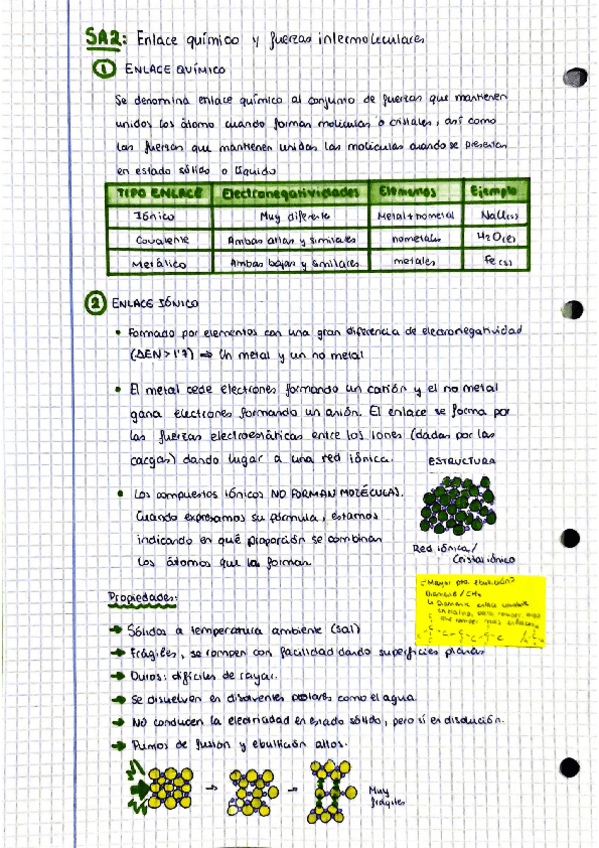 SA2: Enlace químico y fuerzas intermoleculares
1 ENLACE QUÍMICO
Se denomina enlace químico al conjunto de fuerzas que mantienen
unidos los átomo cuando forman moléculas o cristales, así como
las fuerzas que mantienen unidas las moléculas cuando se presentan
en estado sólido o líquido
TIPO ENLACE Electronegatividades Elementos Ejemplo
Iónico Muy diferente Metal + no metal NaCl(s)
Covalente Ambas altas y similares no metales H2O(l)
Metálico Ambas bajas y similares metales Fe(s)
2 ENLACE IÓNICO
• Formado por elementos con una gran diferencia de electronegatividad
(ΔEN > 1'7) ⇒ Un metal y un no metal
• El metal cede electrones formando un catión y el no metal
gana electrones formando un anión. El enlace se forma por
las fuerzas electroestáticas entre los iones (dadas por las
cargas) dando lugar a una red iónica.
ESTRUCTURA
• Los compuestos iónicos NO FORMAN MOLÉCULAS.
Cuando expresamos su fórmula, estamos
indicando en qué proporción se combinan
los átomos que la forman.
Red iónica /
Cristal iónico
¿Mayor pto. ebullición?
Diamante / CH4
↳ Diamante enlace covalente
que romper más enlaces
Propiedades:
→ Sólidos a temperatura ambiente (sal)
→ Frágiles, se rompen con facilidad dando superficies planas
→ Duros: difíciles de rayar.
→ Se disuelven en disolventes polares como el agua.
→ No conducen la electricidad en estado sólido, pero sí en disolución.
→ Puntos de fusión y ebullición altos.
Muy
frágiles